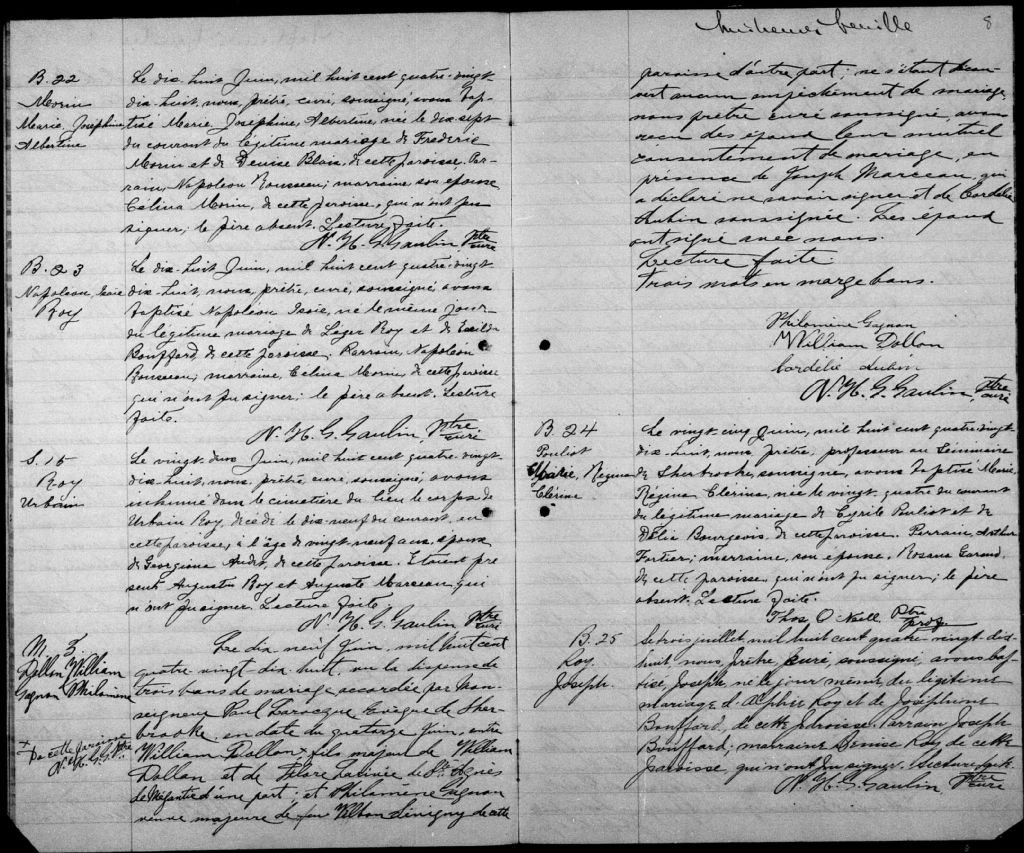 B. 22
Morin
Marie, Josephine
Albertine
Le dix-huit Juin, mil huit cent quatre-vingt-
dix-huit, nous, prêtre, curé, soussigné, avons bap-
tisé Marie, Josephine, Albertine, née le dix-sept
du courant du légitime mariage de Frederic
Morin et de Denise Blais, de cette paroisse. Par-
rain, Napoleon Rousseau; marraine son épouse
Celina Morin, de cette paroisse, qui n'ont pu
signer; le père absent. Lecture faite.
N. H. G. Gaulin Ptre curé
B. 23
Napoléon, Isaie
Roy
Le dix-huit Juin, mil huit cent quatre-vingt-
dix-huit, nous, prêtre, curé, soussigné avons
baptisé Napoléon Isaie, né le même jour
du légitime mariage de Leger Roy et de
Bouffard, de cette paroisse. Parrain, Napoléon
Rousseau; marraine, Celina Morin, de cette paroisse
qui n'ont pu signer; le père absent. Lecture
faite.
N. H. G. Gaulin Ptre curé
S. 15
Roy
Urbain
Le vingt-deux Juin, mil huit cent quatre-vingt-
dix-huit, nous, prêtre, curé, soussigné, avons
inhumé dans le cimetière du lieu le corps de
Urbain Roy, décédé le dix-neuf du courant, en
cette paroisse, à l'âge de vingt-neuf ans, époux
de Georgiana Audet, de cette paroisse. Etaient pré-
sents Auguste Roy et Auguste Marceau, qui
n'ont pu signer. Lecture faite
N. H. G. Gaulin Ptre curé
M. 5.
Dollon, William
Gagnon Philomène
+
De cette paroisse
N. H. G. G. Ptre
Le dix neuf Juin, mil huit cent
quatre vingt dix-huit, vu la dispense de
trois bans de mariage accordée par Mon-
seigneur Paul Larocque Evêque de Sher-
brooke, en date du quatorze Juin, entre
William Dollon + fils majeur de William
Dollon et de de St. Agnès
de Mégantic d'une part; et Philomène Gagnon
veuve majeure de feu de cette
huitième feuille
8
paroisse d'autre part; ne s'étant découvert
aucun empêchement de mariage,
nous prêtre curé soussigné, avons
reçu des époux leur mutuel
consentement de mariage, en
présence de Joseph Marceau, qui
a déclaré ne savoir signer et de Cordélie
Aubin soussignée. Les époux
ont signé avec nous.
Lecture faite.
Trois mots en marge bons.
Philomène Gagnon
William Dollon
Cordélie Aubin
N. H. G. Gaulin, Ptre curé
B. 24
Pouliot
Marie, Regina
Clérina
Le vingt-cinq Juin, mil huit cent quatre-vingt-
dix-huit, nous, prêtre, professeur au Séminaire
de Sherbrooke, soussigné, avons baptisé Marie,
Régina Clérina, née le vingt-quatre du courant
du légitime mariage de Cyrile Pouliot et de
Délia Bourgeois, de cette paroisse. Parrain, Arthur
Fortier; marraine, son épouse, Rosana
de cette paroisse qui n'ont pu signer; le père
absent. Lecture faite.
Thos. O Neill Ptre prof.
B. 25
Roy.
Joseph.
Le trois juillet, mil huit cent quatre vingt dix-
huit, nous, prêtre, curé, soussigné, avons bap-
tisé, Joseph, né le jour même, du légitime
mariage d'Alphée Roy et de Joséphine
Bouffard, de cette paroisse. Parrain Joseph
Bouffard; marraine Denise Roy de cette
paroisse, qui n'ont pu signer. Lecture faite.
N. H. G. Gaulin Ptre curé